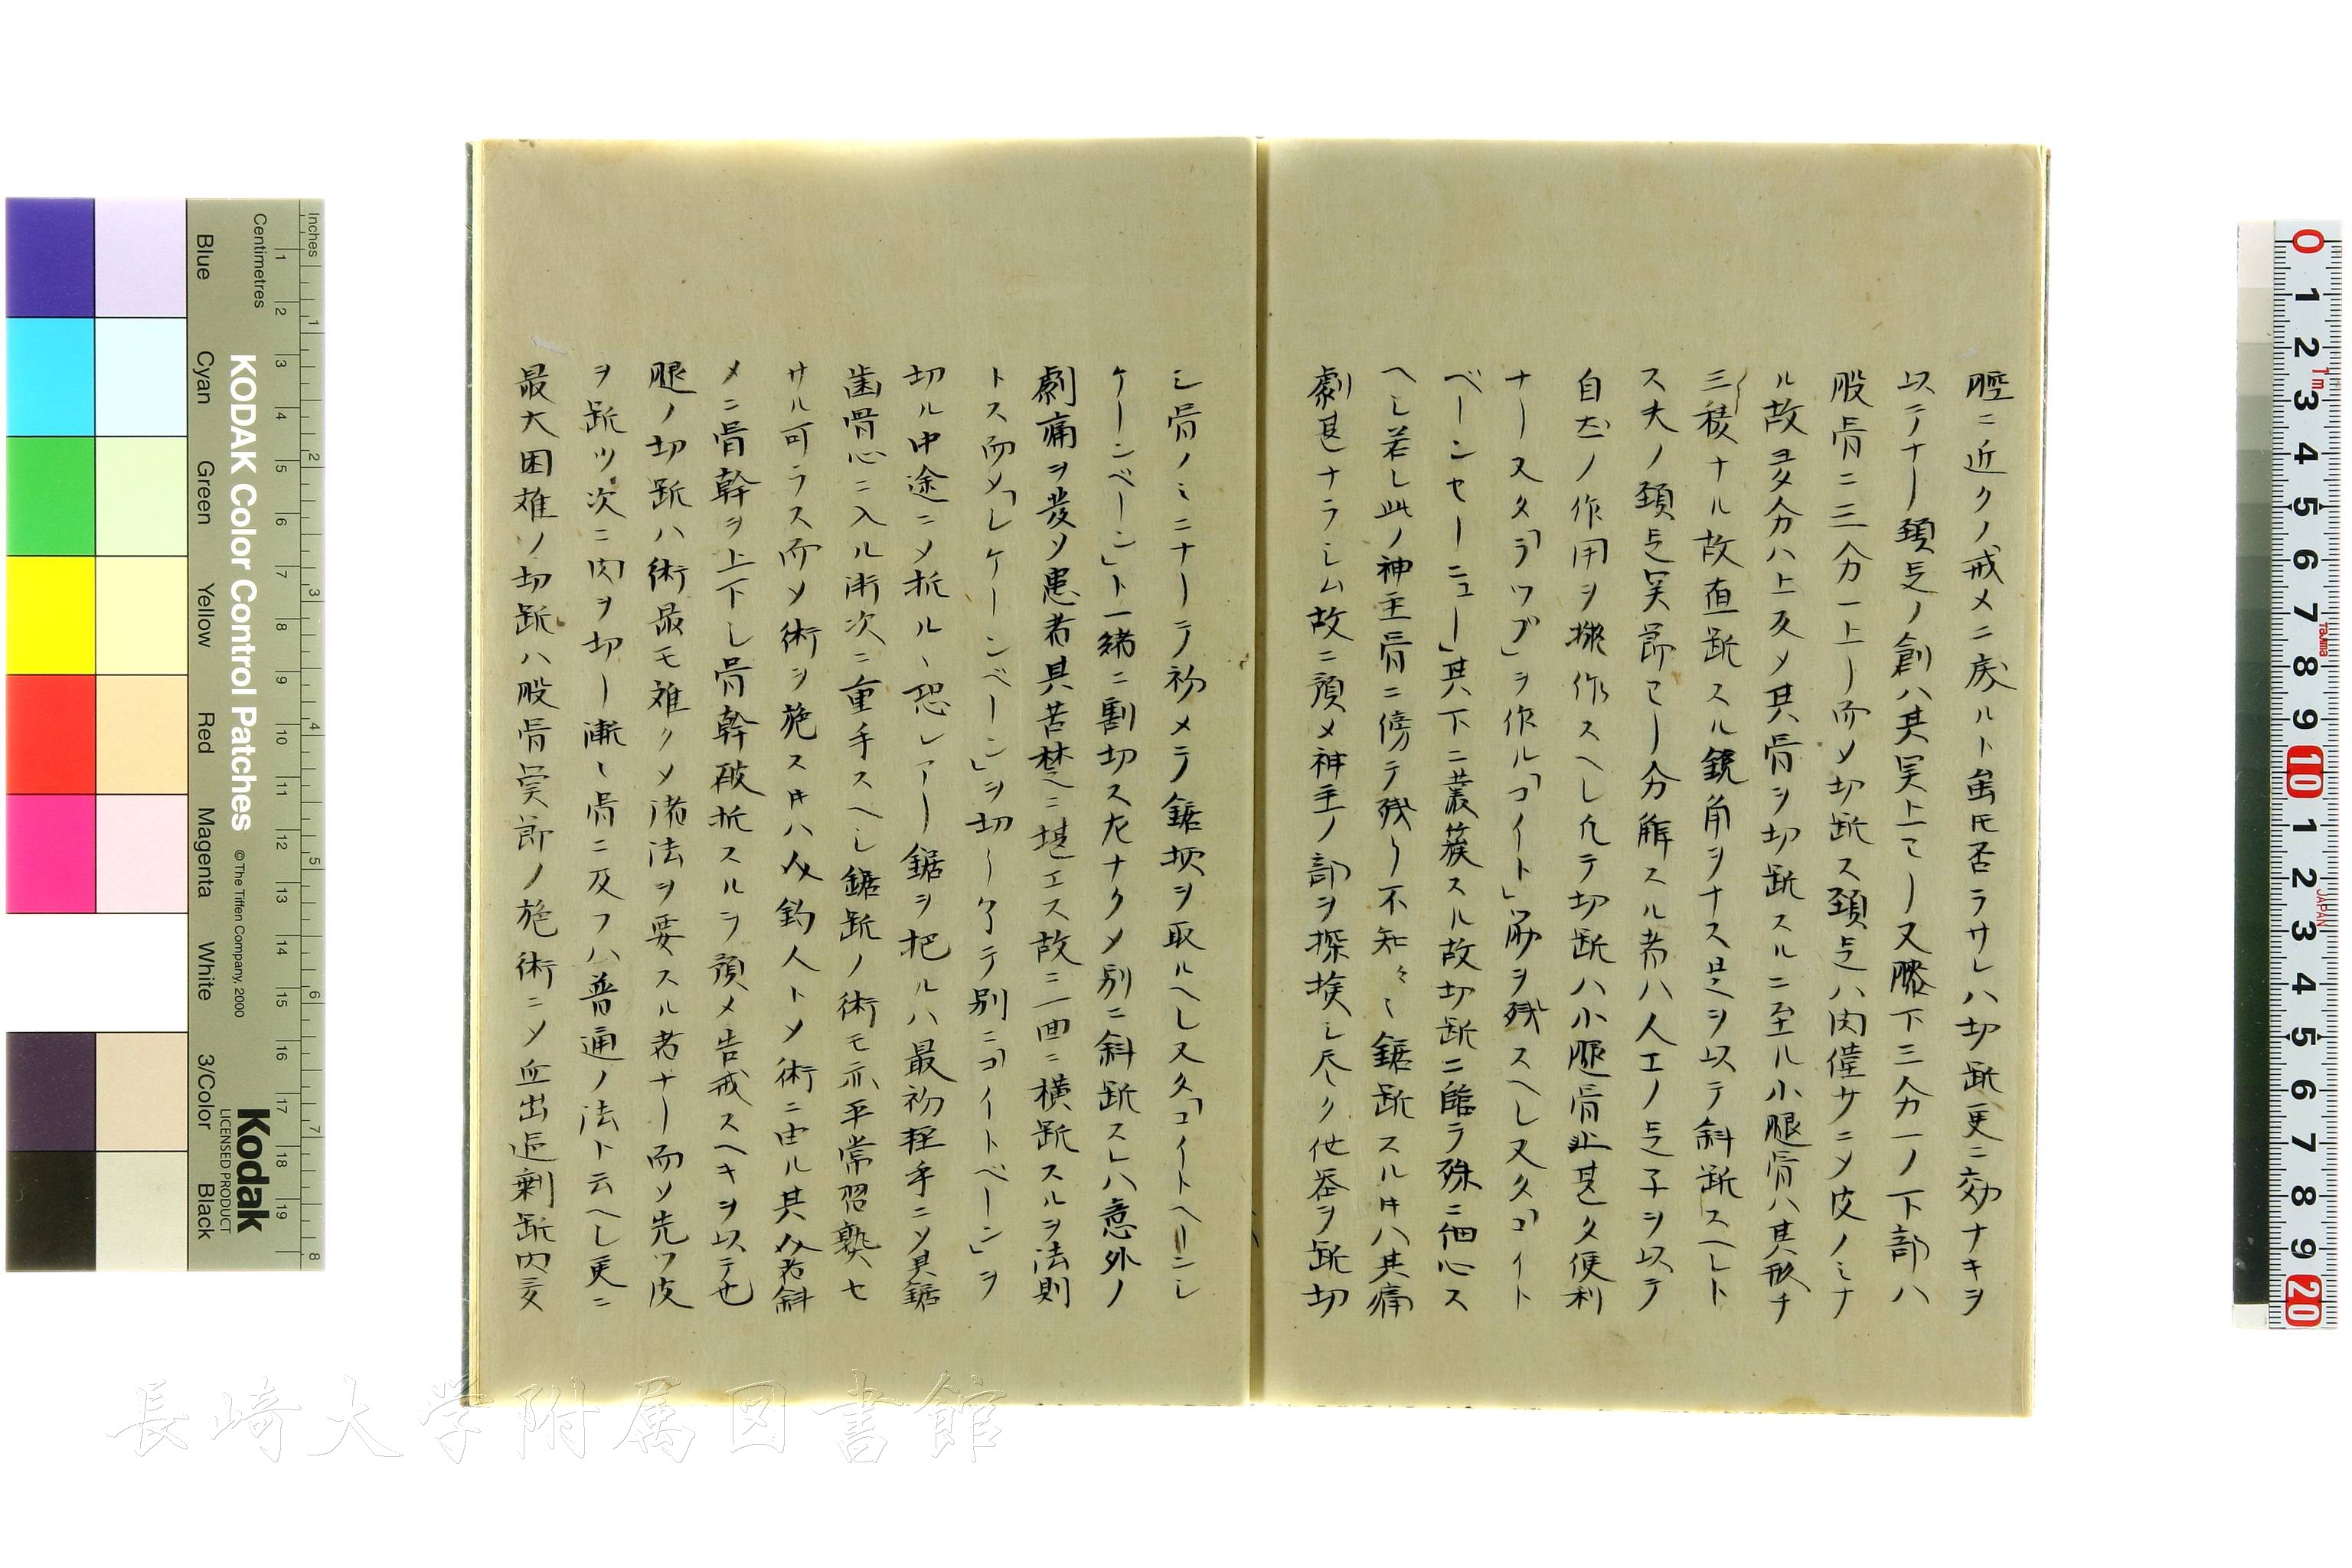 腔ニ近クノ戒メニ戻ルト虽𪜈否ラサレハ切断更ニ効ナキヲ
以テナー頚疋ノ創ハ其実上マー又膝下三分一ノ下部ハ
股骨ニ三分一上ー而メ切断ス頚疋ハ肉僅サニメ皮ノミナ
ル故多分ハ上反メ其骨ヲ切断スルニ至ル小腿骨ハ其形チ
三稜ナル故直断スル銃角ヲナス是ヲ以テ斜断スヘト
ス夫ノ頚疋実節マー分解スル者ハ人工ノ疋子ヲ以テ
自在ノ作用ヲ作スヘし凡テ切断ハ小腿骨止甚タ便利
ナースタ「ラツプ」ヲ作ル「コイト」筋ヲ残スヘし又タ「コイト
ベーンセーニュー」其下ニ叢簇スル故切断ニ臨ラ殊ニ細心ス
ヘし若し此ノ神主骨ニ傍テ残り不知々々鋸断スル𪜈ハ其痛
劇甚ナラしム故ニ預メ神主ノ部ヲ探挨し尽ク他器ヲ断切
し骨ノミニナーテ初メテ鋸吹ヲ取ルヘしスタ「コイトヘーンし
ケーンベーン」ト一緒ニ割切ス尤ナクメ別ニ斜断スレハ意外ノ
劇痛ヲ発ソ患者其苦楚ニ堪エス故ニ一回ニ横断スルヲ法則
トス而メ「しケーンベーン」ヲ切ーケテ別ニ「コイトベーン」ヲ
切ル中途ニメ折ル丶恐レアー鋸ヲ把ルハ最初軽手ニソ具鋸
歯骨心ニ入ル漸次ニ重手スヘし鋸断ノ術モ亦平常習熟セ
サル可ラス而メ術ヲ施スキハ鈞人トメ術ニ由ル其者斜
メニ骨幹ヲ上下し骨幹破折スルヲ預メ告戒スヘキヲ以テ也
腿ノ切断ハ術最モ難クメ諸法ヲ要スル者ナー而ソ先ツ皮
ヲ断ツ次ニ肉ヲ切ー漸々骨ニ及フハ普通ノ法ト云ヘし更ニ
最大困難ノ切断ハ股骨実節ノ施術ニメ血出過剰断肉変
Inches
Centimetres
KODAK Color Control Patches
©The Tiffen Company, 2000
Kodak
LICENSED PRODUCT
Blue
Cyan
Green
Yellow
Red
Magenta
White
3/Color
Black
長崎大学附属図書館